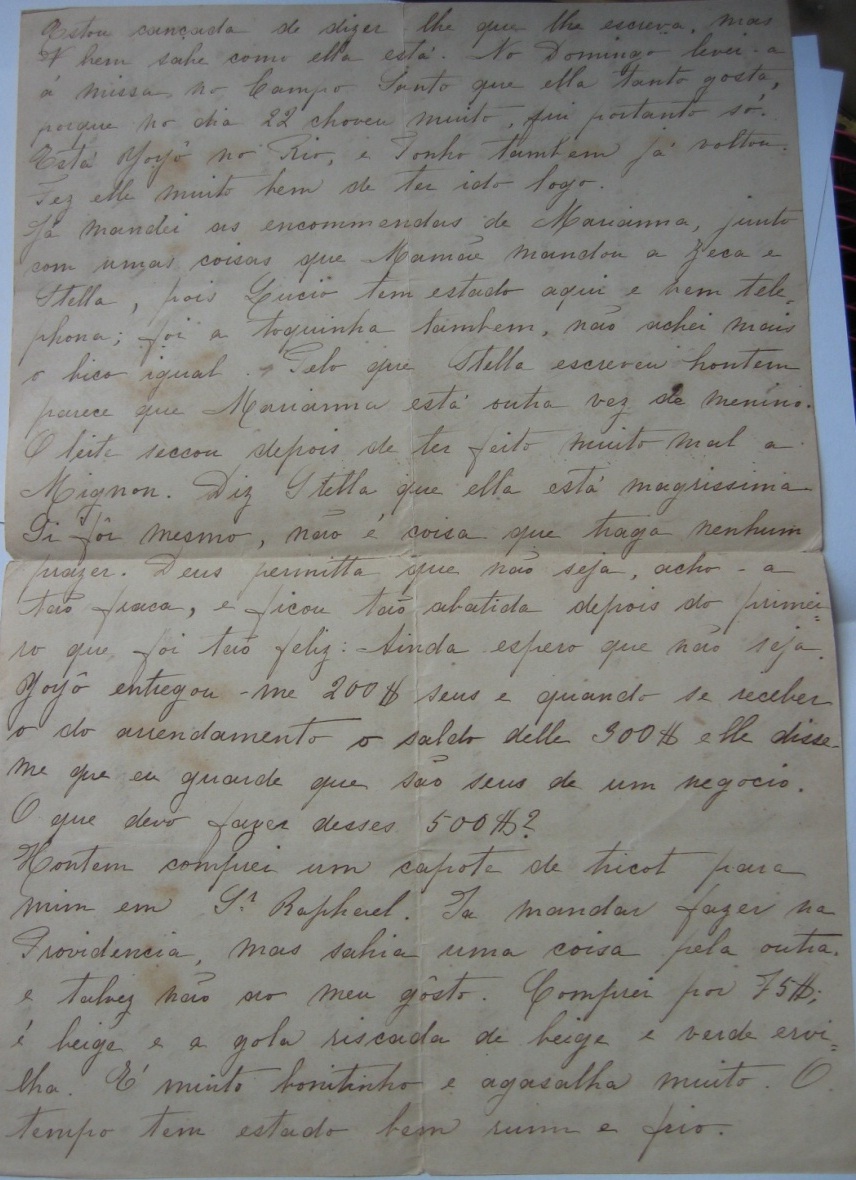 Estou cançada de dizer lhe que lhe escreva, mas
V bem sabe como ella está. No Domingo levei-a
á missa no Campo Santo que ella tanto gosta,
porque no dia 22 choveu muito, fui portanto só.
Está Yoyô no Rio, e Tonho tambem já voltou.
Fez elle muito bem de ter ido logo.
Já mandei as encommendas de Marianna, junto
com umas coisas que Mamãe mandou a Zeca e
Stella, pois Lucio tem estado aqui e bem tele-
phona; foi a toquinha tambem, não achei mais
o bico igual. Pelo que Stella escreveu hontem
parece que Marianna está outra vez de menino.
O leite seccou depois de ter feito muito mal a
Mignon. Diz Stella que ella está magrissima
Si fôr mesmo, não é coisa que traga nenhum
prazer. Deus permitta que não seja, acho-a
tão fraca, e ficou tão abatida depois do primei-
ro que foi tão feliz. Ainda espero que não seja.
Yoyô entregou-me 200$ seus e quando se receber
o do arrendamento o saldo delle 300$ elle disse-
me que eu guarde que são seus de um negocio.
O que devo fazer desses 500$?
Hontem comprei um capote de tricot para
mim em S. Raphael. Ia mandar fazer na
Providencia, mas sahia uma coisa pela outra.
e talvez não ao meu gôsto. Comprei por 75$;
é beige e a gola riscada de beige e verde ervi-
lha. É muito bonitinho e agasalha muito. O
tempo tem estado bem ruim e frio.